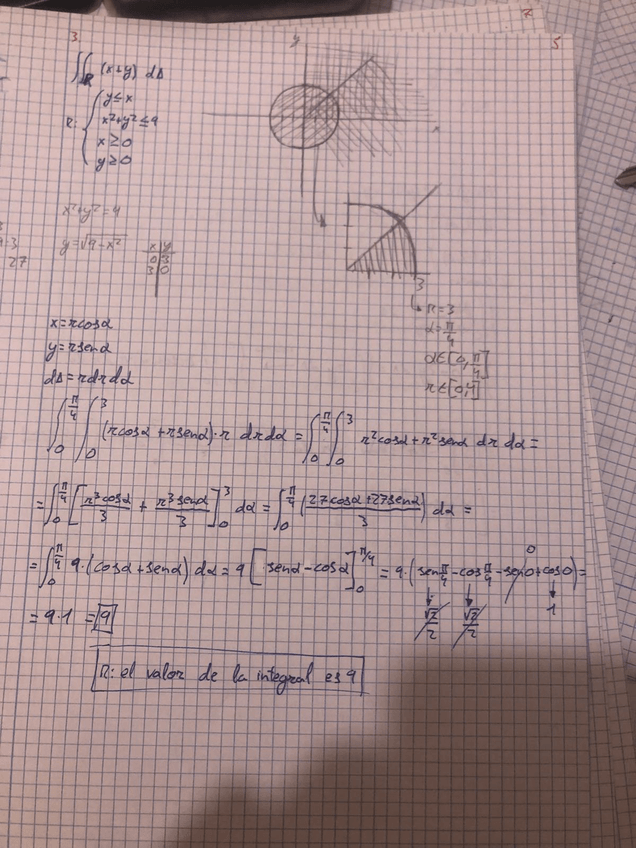 3.
5
∬_R (x+y) dA
R: { y≤x
x²+y²≤9
x≥0
y≥0
y
x
x²+y²=4
y=√(9-x²)
x | y
0 | 3
3 | 0
27
3
R=3
α=π/4
α∈[0, π/4]
r∈[0,4]
x=rcosα
y=rsenα
dA=rdrdα
∫_0^{π/4} ∫_0^3 (rcosα+rsenα)·r drdα = ∫_0^{π/4} ∫_0^3 r²cosα+r²senα dr dα =
= ∫_0^{π/4} [r³cosα/3 + r³senα/3]_0^3 dα = ∫_0^{π/4} (27cosα+27senα)/3 dα =
= ∫_0^{π/4} 9·(cosα+senα) dα = 9 [senα-cosα]_0^{π/4} = 9·(sen π/4 - cos π/4 - sen0 + cos0) =
0
√2/2 √2/2 1
= 9·1 = 9
R: el valor de la integral es 9